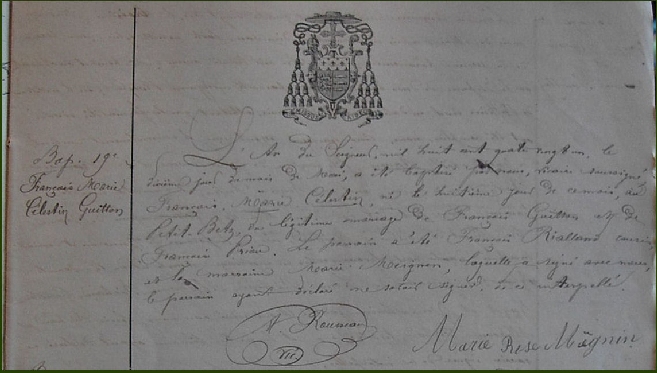 Bap. 19e
François Marie
Célestin Guitton
L'An du Seigneur, mil huit cent quatre vingt un, le
dixième jour du mois de Mai, a été baptisé par nous, vicaire soussigné
François, Marie Célestin, né le huitième jour de ce mois, au
Petit Betz, du légitime mariage de François Guitton et de
Prime. Le parrain a été François Rialland
et la marraine Marie Meignen, laquelle a signé avec nous,
le parrain ayant déclaré ne savoir signer, de ce interpellé.
A. Rousseau
Vic
Marie Rose Mäignin